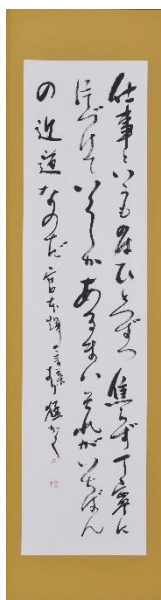 仕事というものはひとつずつ焦らず丁寧に
片づけていくしかあるまいそれがいちばん
の近道なのだ 宮本輝